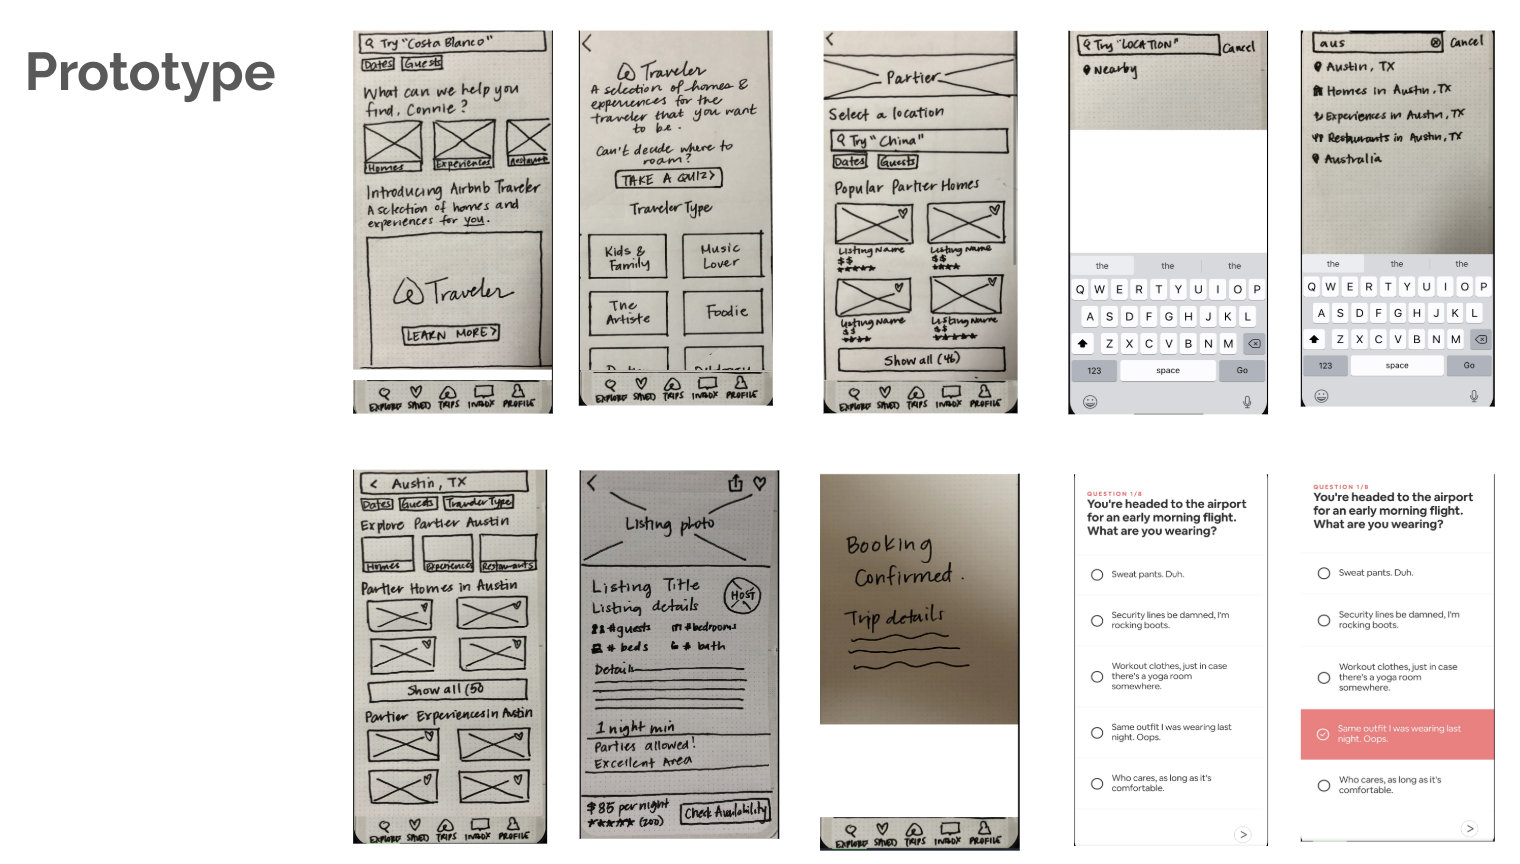 Prototype
Try "Costa Blanco"
Dates Guests
What can we help you
find, Connie?
Homes Experiences Restaurant
Introducing Airbnb Traveler
A selection of homes and
experiences for you.
Traveler
LEARN MORE >
EXPLORE SAVED TRIPS INBOX PROFILE
Traveler
A selection of homes &
experiences for the
traveler that you want
to be.
Can't decide where to
roam?
TAKE A QUIZ >
Traveler Type
Kids &
Family
Music
Lover
The
Artiste
Foodie
EXPLORE SAVED TRIPS INBOX PROFILE
Partier
Select a location
Try "China"
Dates Guests
Popular Partier Homes
Listing Name
$$
★★★★★
Listing Name
$$
★★★★
Listing Name
$$
★★★★
Listing Name
$$
★★★★★
Show all (46)
EXPLORE SAVED TRIPS INBOX PROFILE
Try "LOCATION" Cancel
Nearby
the the the
Q W E R T Y U I O P
A S D F G H J K L
Z X C V B N M
123 space Go
aus Cancel
Austin, TX
Homes in Austin, TX
Experiences in Austin, TX
Restaurants in Austin, TX
Australia
the the the
Q W E R T Y U I O P
A S D F G H J K L
Z X C V B N M
123 space Go
< Austin, TX
Dates Guests Traveler Type
Explore Partier Austin
Homes Experiences Restaurants
Partier Homes in Austin
Show all (50
Partier Experiences in Austin
EXPLORE SAVED TRIPS INBOX PROFILE
Listing photo
Listing Title
Listing details
HOST
#guests #bedrooms
# beds # bath
Details
1 night min
Parties allowed!
Excellent Area
$85 per night
★★★★★ (200)
Check Availability
Booking
Confirmed.
Trip details
EXPLORE SAVED TRIPS INBOX PROFILE
QUESTION 1/8
You're headed to the airport
for an early morning flight.
What are you wearing?
Sweat pants. Duh.
Security lines be damned, I'm
rocking boots.
Workout clothes, just in case
there's a yoga room
somewhere.
Same outfit I was wearing last
night. Oops.
Who cares, as long as it's
comfortable.
QUESTION 1/8
You're headed to the airport
for an early morning flight.
What are you wearing?
Sweat pants. Duh.
Security lines be damned, I'm
rocking boots.
Workout clothes, just in case
there's a yoga room
somewhere.
Same outfit I was wearing last
night. Oops.
Who cares, as long as it's
comfortable.